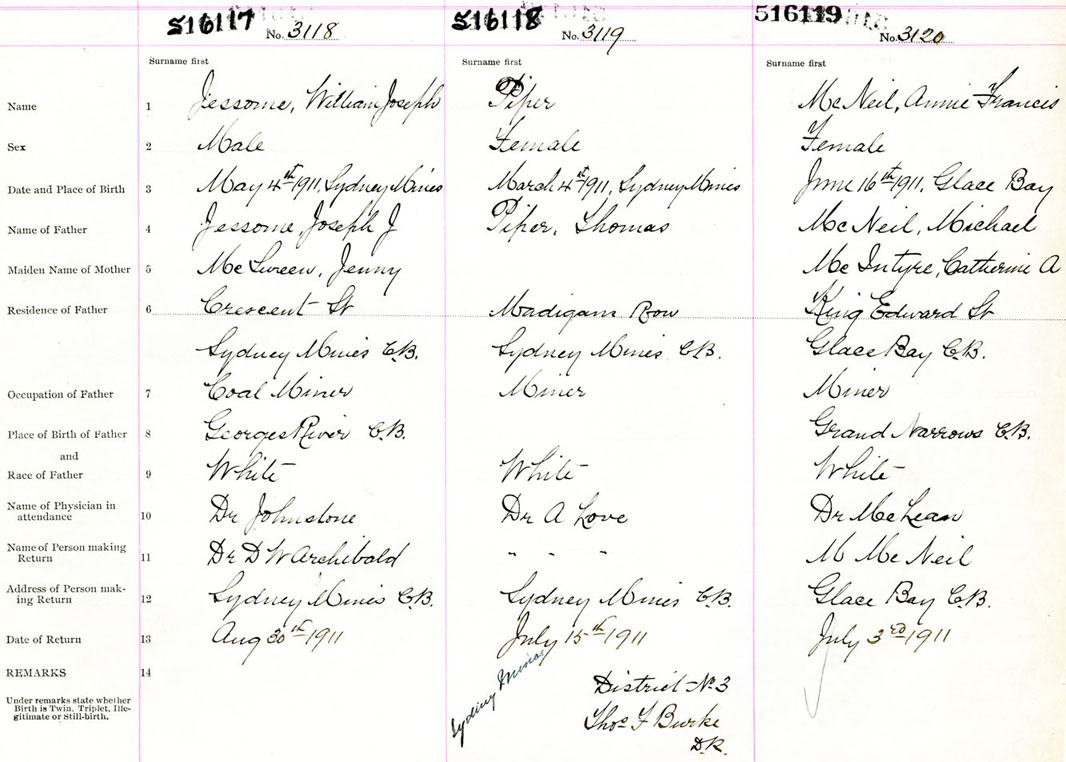 516117 516118 516119
No. 3118 No. 3119 No. 3120
Surname first Surname first Surname first
Name 1 Jessome, William Joseph Piper McNeil, Annie Francis
Sex 2 Male Female Female
Date and Place of Birth 3 May 4th 1911, Sydney Mines March 4st 1911, Sydney Mines June 16th 1911, Glace Bay
Name of Father 4 Jessome, Joseph J Piper, Thomas McNeil, Michael
Maiden Name of Mother 5 McSween, Jenny McIntyre, Catherine A
Residence of Father 6 Crescent St Madigans Row King Edward St
Sydney Mines C.B. Sydney Mines C.B. Glace Bay C.B.
Occupation of Father 7 Coal Miner Miner Miner
Place of Birth of Father 8 Georges River C.B. Grand Narrows C.B.
and
Race of Father 9 White White White
Name of Physician in
attendance 10 Dr Johnstone Dr A Love Dr McLean
Name of Person making
Return 11 Dr D W Archibald " " " M McNeil
Address of Person mak-
ing Return 12 Sydney Mines C.B. Sydney Mines C.B. Glace Bay C.B.
Date of Return 13 Aug 30th 1911 July 15th 1911 July 3rd 1911
REMARKS 14
Under remarks state whether
Birth is Twin, Triplet, Ille-
gitimate or Still-birth.
Sydney Mines
District No 3
Thos F Burke
D.R.